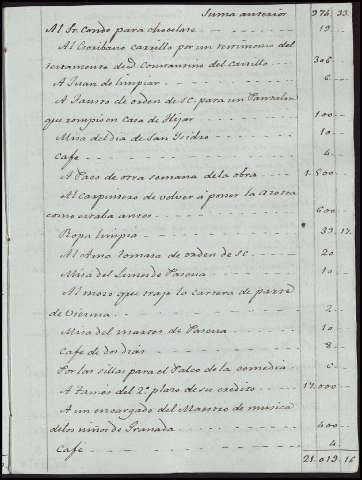 Suma anterior 974 33
Al Sr. Conde para chocolate 19
Al Escribano Carrillo por un testimonio del
testamento de Constantino del Castillo 306
A Juan de limpiar 6
A Fausto de orden de S.C. para un
que rompió en Casa de Hijar 100
Misa del dia de San Isidro 10
Cafe 4
A Paco de otra semana de la obra 1.500
Al Carpintero de volver à poner la
como estaba antes 600
Ropa limpia 39 17
Al Ama tomasa de orden de S.C. 20
Misa del Lunes de Pascua 10
Al mozo que trajo la cartera de parte
de 2
Misa del martes de Pascua 10
Cafe de dos dias 8
Por las sillas para el Palco de la comedia 6
A del 2º plazo de su credito 17.000
A un encargado del Maestro de musica
delos niños de Granada 400
Cafe 4
21.019 16